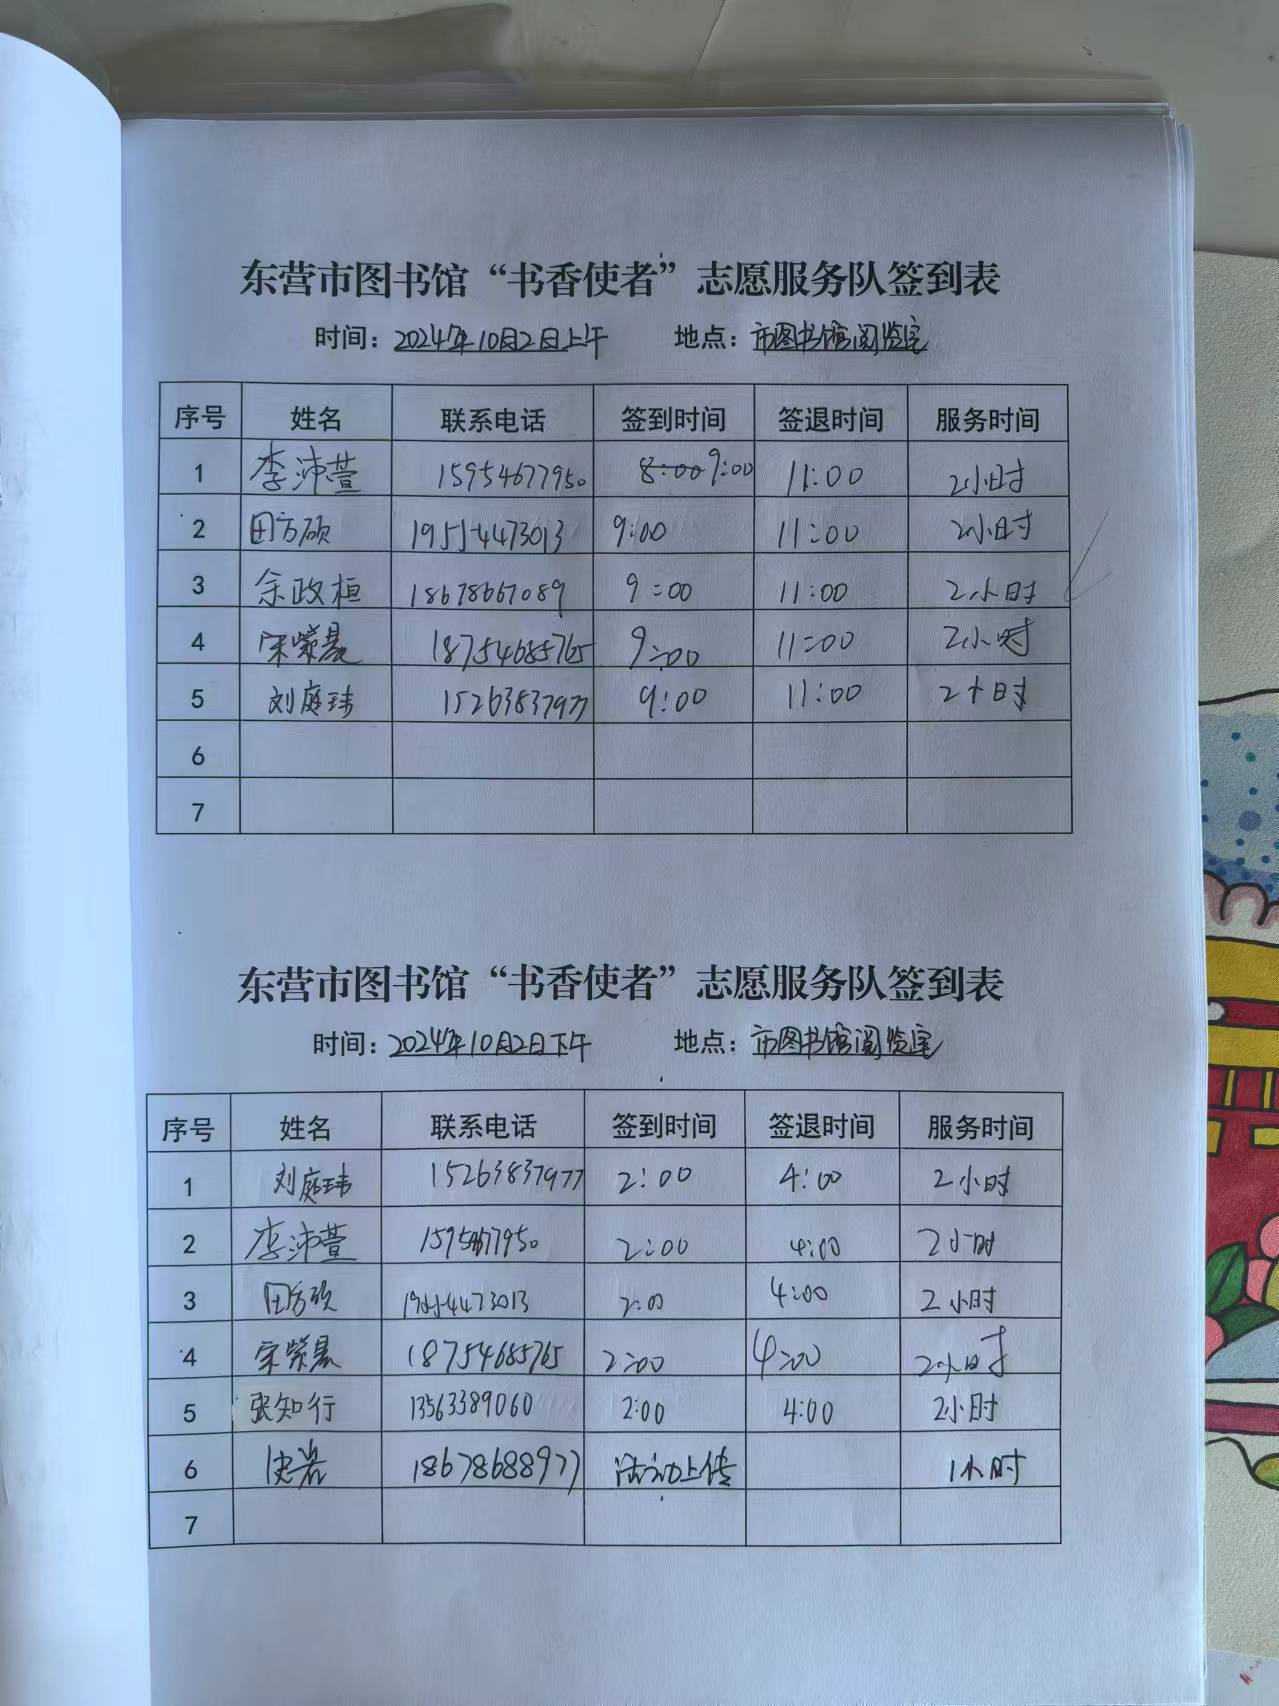 东营市图书馆“书香使者”志愿服务队签到表
时间：2024年10月2日上午 地点：市图书馆阅览室
序号 姓名 联系电话 签到时间 签退时间 服务时间
1 李沛萱 15954677950 8:00 9:00 11:00 2小时
2 田方硕 19554473013 9:00 11:00 2小时
3 余政桓 18678667089 9:00 11:00 2小时
4 宋紫晨 18754685765 9:00 11:00 2小时
5 刘庭玮 15263837977 9:00 11:00 2小时
6
7
东营市图书馆“书香使者”志愿服务队签到表
时间：2024年10月2日下午 地点：市图书馆阅览室
序号 姓名 联系电话 签到时间 签退时间 服务时间
1 刘庭玮 15263837977 2:00 4:00 2小时
2 李沛萱 15954677950 2:00 4:00 2小时
3 田方硕 19554473013 2:00 4:00 2小时
4 宋紫晨 18754685765 2:00 4:00 2小时
5 张知行 13563389060 2:00 4:00 2小时
6 18678688977 活动上传 1小时
7